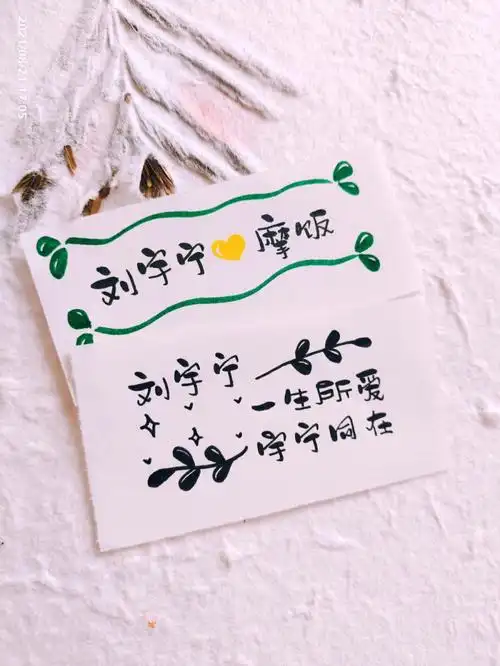 刘宇宁💛摩饭
刘宇宁
一生所爱
宇宁同在
2021/08/21 17:05